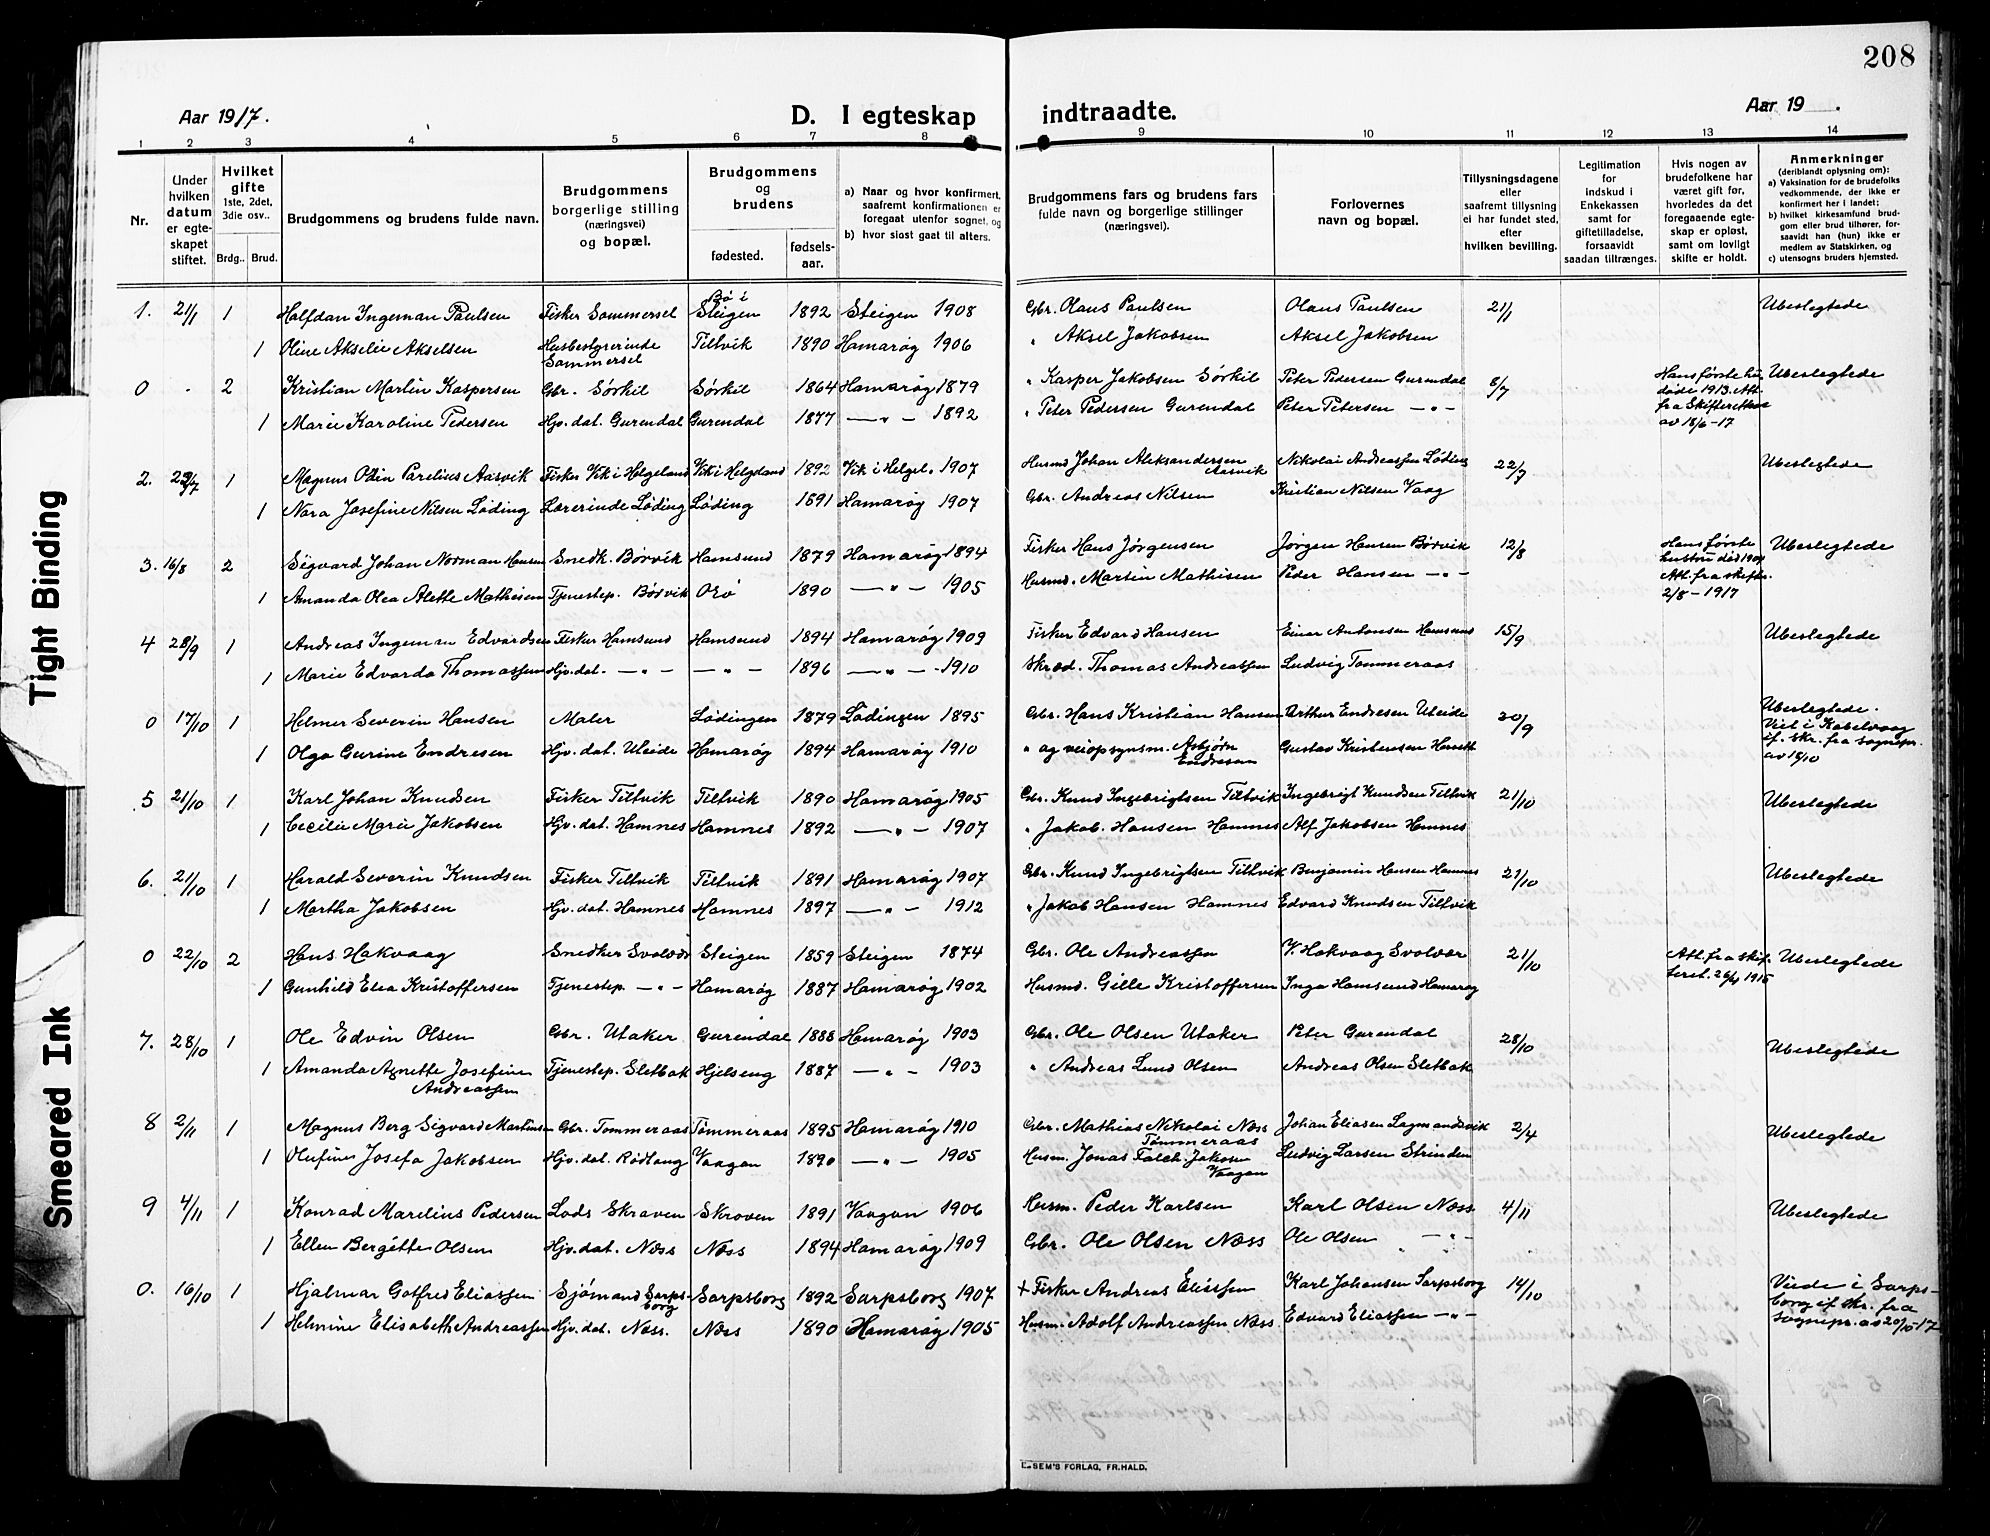 208
Aar 1917. D. I egteskap indtraadte. Aar 19 .
1 2 3 4 5 6 7 8 9 10 11 12 13 14
Nr.
Under hvilken datum er egteskapet stiftet.
Hvilket gifte 1ste, 2det, 3die osv..
Brdg.. Brud.
Brudgommens og brudens fulde navn.
Brudgommens borgerlige stilling (næringsvei) og bopæl.
Brudgommens og brudens
fødested. fødsels-aar.
a) Naar og hvor konfirmert, saafremt konfirmationen er foregaat utenfor sognet, og
b) hvor sidst gaat til alters.
Brudgommens fars og brudens fars fulde navn og borgerlige stillinger (næringsvei).
Forlovernes navn og bopæl.
Tillysningsdagene eller saafremt tillysning ei har fundet sted, efter hvilken bevilling.
Legitimation for indskud i Enkekassen samt for giftetilladelse, forsaavidt saadan tiltrænges.
Hvis nogen av brudefolkene har været gift før, hvorledes da det foregaaende egteskap er opløst, samt om lovligt skifte er holdt.
Anmerkninger (deriblandt oplysning om):
a) Vaksination for de brudefolks vedkommende, der ikke er konfirmert her i landet;
b) hvilket kirkesamfund brudgom eller brud tilhører, forsaavidt han (hun) ikke er medlem av Statskirken, og
c) utensogns bruders hjemsted.
1. 21/1 1 Halfdan Ingeman Paulsen Fisker Sommersel Bø i Steigen 1892 Steigen 1908 Gbr. Olaus Paulsen Olaus Paulsen 21/1 Ubeslegtede
1 Oline Akselie Akselsen Husbestyrerinde Sommersel Tiltvik 1890 Hamarøg 1906 " Aksel Jakobsen Aksel Jakobsen
0 . 2 Kristian Martin Kaspersen Gbr. Sørkil Sørkil 1864 Hamarøg 1879 " Kasper Jakobsen Sørkil Peter Pedersen Gurendal 8/7 Hans første hu døde 1913. Att. fra Skifteretten av 18/6-17 Ubeslegtede
1 Marie Karoline Pedersen Hjv. dat. Gurendal Gurendal 1877 — " — 1892 " Peter Pedersen Gurendal Peter Petersen — " —
2. 22/7 1 Magnus Odin Parelius Aasvik Fisker Vik i Helgeland Vik i Helgeland 1892 Vik i Helgel. 1907 Husmd Johan Aleksandersen Aasvik Nikolai Andreassen Løding 22/7 Ubeslegtede
1 Nora Josefine Nilsen Løding Lærerinde Løding Løding 1891 Hamarøg 1907 Gbr. Andreas Nilsen Kristian Nilsen Vaag
3. 16/8 2 Sigvard Johan Norman Hansen Snedk. Børvik Hamsund 1879 Hamarøg 1894 Fisker Hans Jørgensen Jørgen Hansen Børvik 12/8 Hans første hustru død 1907 Att. fra skifte. 2/8-1917 Ubeslegtede
1 Amanda Olea Alette Mathisen Tjenestep. Børvik 1890 — " — 1905 Husmd. Martin Mathisen Peder Hansen — " —
4 28/9 1 Andreas Ingeman Edvardsen Fisker Hamsund Hamsund 1894 Hamarøg 1909 Fisker Edvard Hansen Einar Antonsen Hamsund 15/9 Ubeslegtede
1 Marie Edvarda Thomassen Hjv. dat. — " — — " — 1896 — " — 1910 Skræd. Thomas Andreassen Ludvig Tømmeraas
0 17/10 1 Helmer Severin Hansen Maler Lødingen 1879 Lødingen 1895 Gbr. Hans Kristian Hansen Arthur Endresen Uleide 30/9 Ubeslegtede. Viet i Kabelvaag if. skr. fra sognepr. av 18/10
1 Olga Gurine Endresen Hjv. dat. Uleide Hamarøg 1894 Hamarøg 1910 " og veiopsynsm. Asbjørn Endresen Gustav Kristensen
5 21/10 1 Karl Johan Knudsen Fisker Tiltvik Tiltvik 1890 Hamarøg 1905 Gbr. Knud Ingebrigtsen Tiltvik Ingebrigt Knudsen Tiltvik 21/10 Ubeslegtede
1 Cecilie Marie Jakobsen Hjv. dat. Hamnes Hamnes 1892 — " — 1907 " Jakob. Hansen Hamnes Alf Jakobsen Hamnes
6. 21/10 1 Harald Severin Knudsen Fisker Tiltvik Tiltvik 1891 Hamarøg 1907 Gbr. Knud Ingebrigtsen Tiltvik Benjamin Hansen Hamnes 21/10 Ubeslegtede
1 Martha Jakobsen Hjv. dat. Hamnes Hamnes 1897 — " — 1912 " Jakob Hansen Hamnes Edvard Knudsen Tiltvik
0 22/10 2 Hans Hakvaag Snedker Svolvær Steigen 1859 Steigen 1874 Gbr. Ole Andreassen V. Hakvaag Svolvær 21/10 Att. fra skifteret. 1915 Ubeslegtede
1 Gunhild Elea Kristoffersen Tjenestep. — " — Hamarøg 1887 Hamarøg 1902 Husmd. Gille Kristoffersen Inga Hamsund Hamarøg
7. 28/10 1 Ole Edvin Olsen Gbr. Utaker Gurendal 1888 Hamarøg 1903 Gbr. Ole Olsen Utaker Peter Gurendal 28/10 Ubeslegtede
1 Amanda Agnette Josefine Andreassen Tjenestep. Sletbak Hjelseng 1887 — " — 1903 " Andreas Lund Olsen Andreas Olsen Sletbak
8 2/11 1 Magnus Berg Sigvard Martinsen Gbr. Tømmeraas Tømmeraas 1895 Hamarøg 1910 Gbr. Mathias Nikolai Næss Tømmeraas Johan Eliasen Lagmandsvik 2/4 Ubeslegtede
1 Olufine Josefa Jakobsen Hjv. dat. Rødtang Vaagan 1890 — " — 1905 Husm. Jonas Falch. Jakobsen Vaagan Ludvig Larsen Strinden
9 4/11 1 Konrad Marelius Pedersen Lods Skraven Skroven 1891 Vaagan 1906 Husm. Peder Karlsen Karl Olsen Næss 4/11 Ubeslegtede
1 Ellen Bergitte Olsen Hjv. dat. Næss Næss 1894 Hamarøg 1909 Gbr. Ole Olsen Næss Ole Olsen — " —
0. 16/10 1 Hjalmar Gotfred Eliassen Sjømand Sarpsborg Sarpsborg 1892 Sarpsborg 1907 + Fisker Andreas Eliassen Karl Johansen Sarpsborg 14/10 Viede i Sarpsborg if skr. fra sognepr. av 20/10-17
1 Helmine Elisabeth Andreassen Hjv. dat. Næss. Næss 1890 Hamarøg 1905 Husm. Adolf Andreassen Næss Edvard Eliassen — " —
SEM'S FORLAG, FR.HALD.
Tight Binding
Smeared Ink